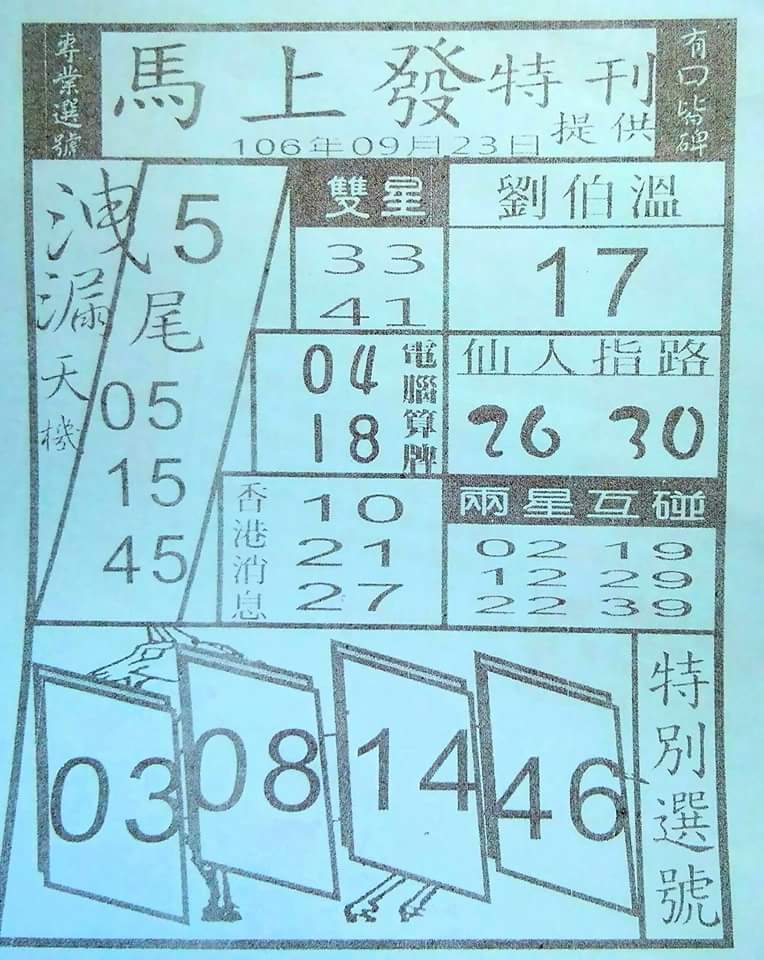 專業選號
馬上發特刊
提供
106年09月23日
有口皆碑
洩漏天機
5
尾
05
15
45
雙星
33
41
劉伯溫
17
04
18
電腦算牌
仙人指路
26 30
香港消息
10
21
27
兩星互碰
02 19
12 29
22 39
03 08 14 46
特別選號